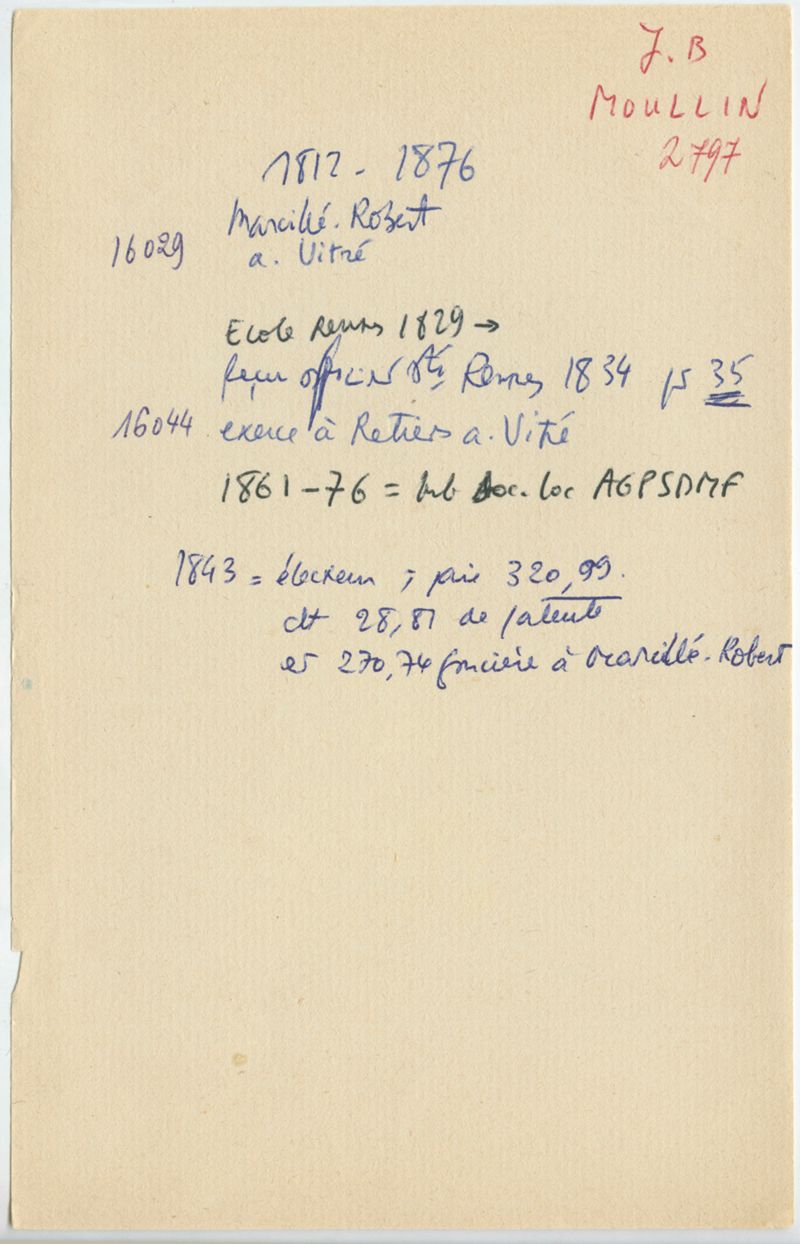 J. B
MOULLIN
2797
1812 - 1876
Marcillé-Robert
16029 a. Vitré
Ecole Rennes 1829 →
reçu officier sté Rennes 1834 ps 35
16044 exerce à Retiers a. Vitré
1861-76 = mb soc. loc AGPSDMF
1843 = électeur ; paie 320,99.
dt 28,81 de patente
et 270,74 foncière à Marcillé-Robert